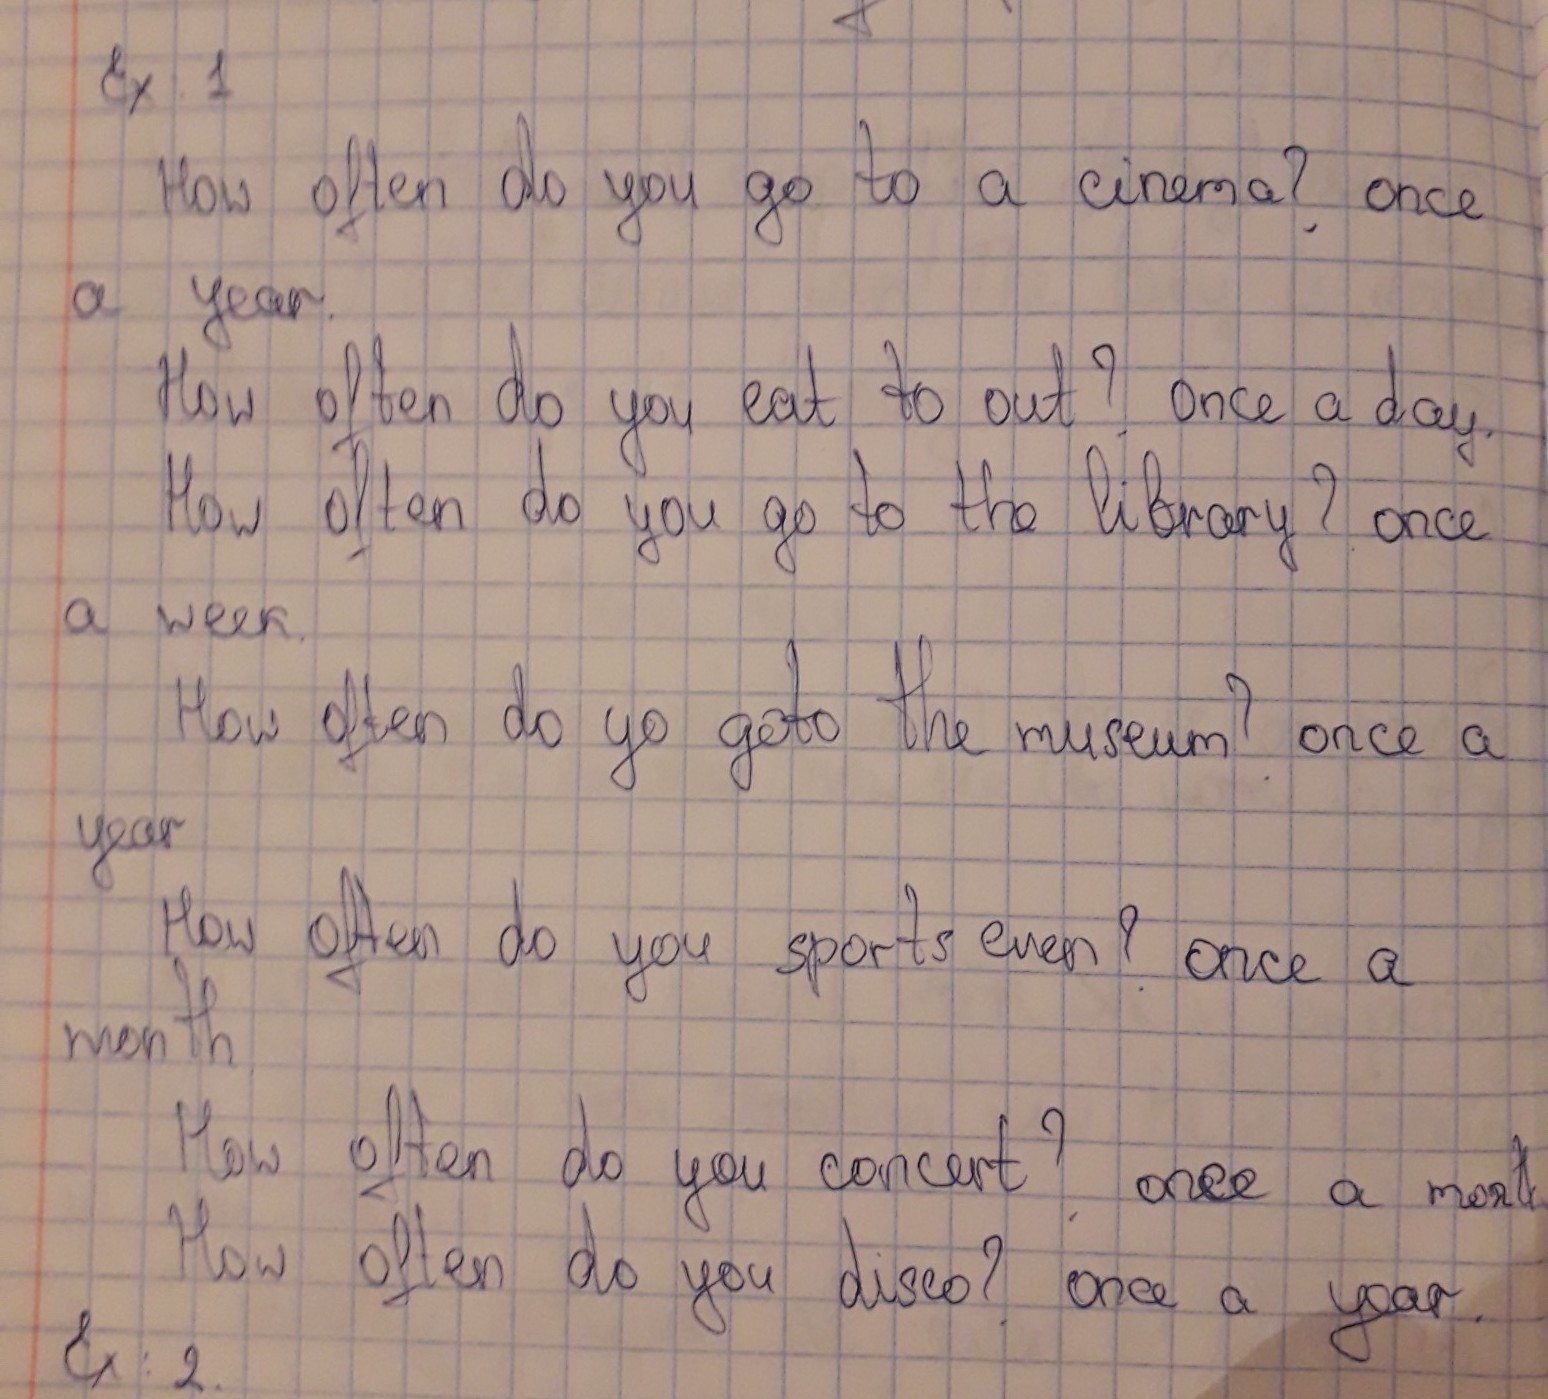 Ex. 1
How often do you go to a cinema? once
a year.
How often do you eat to out? once a day.
How often do you go to the library? once
a week.
How often do yo goto the museum? once a
year
How often do you sports even? once a
month
How often do you concert? once a month
How often do you disco? once a year.
Ex: 2.